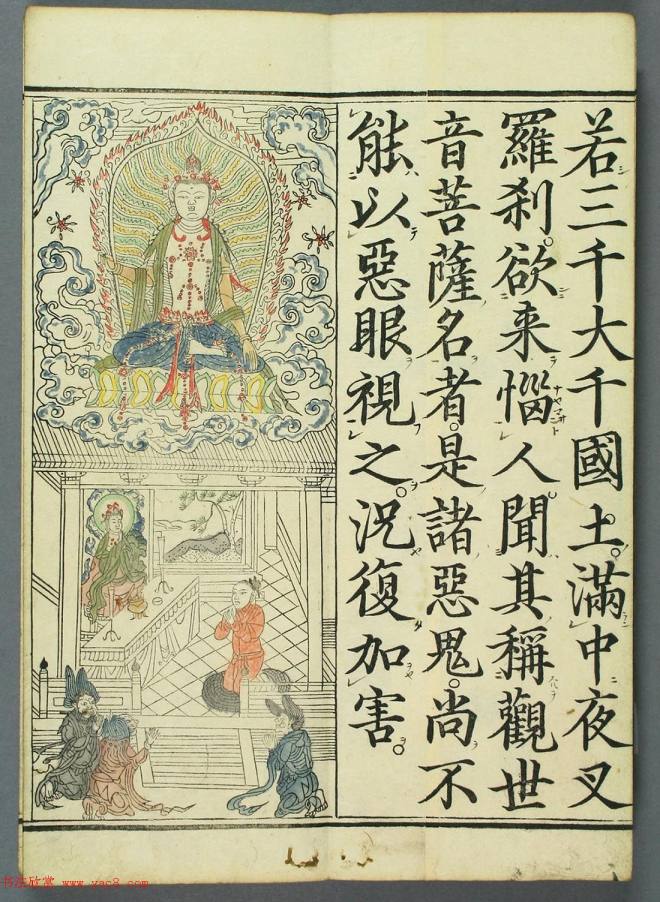 若三千大千國土滿中夜叉
羅刹欲来惱人聞其稱觀世
音菩薩名者是諸惡鬼尚不
能以惡眼視之況復加害
书法欣赏 www.yac8.com